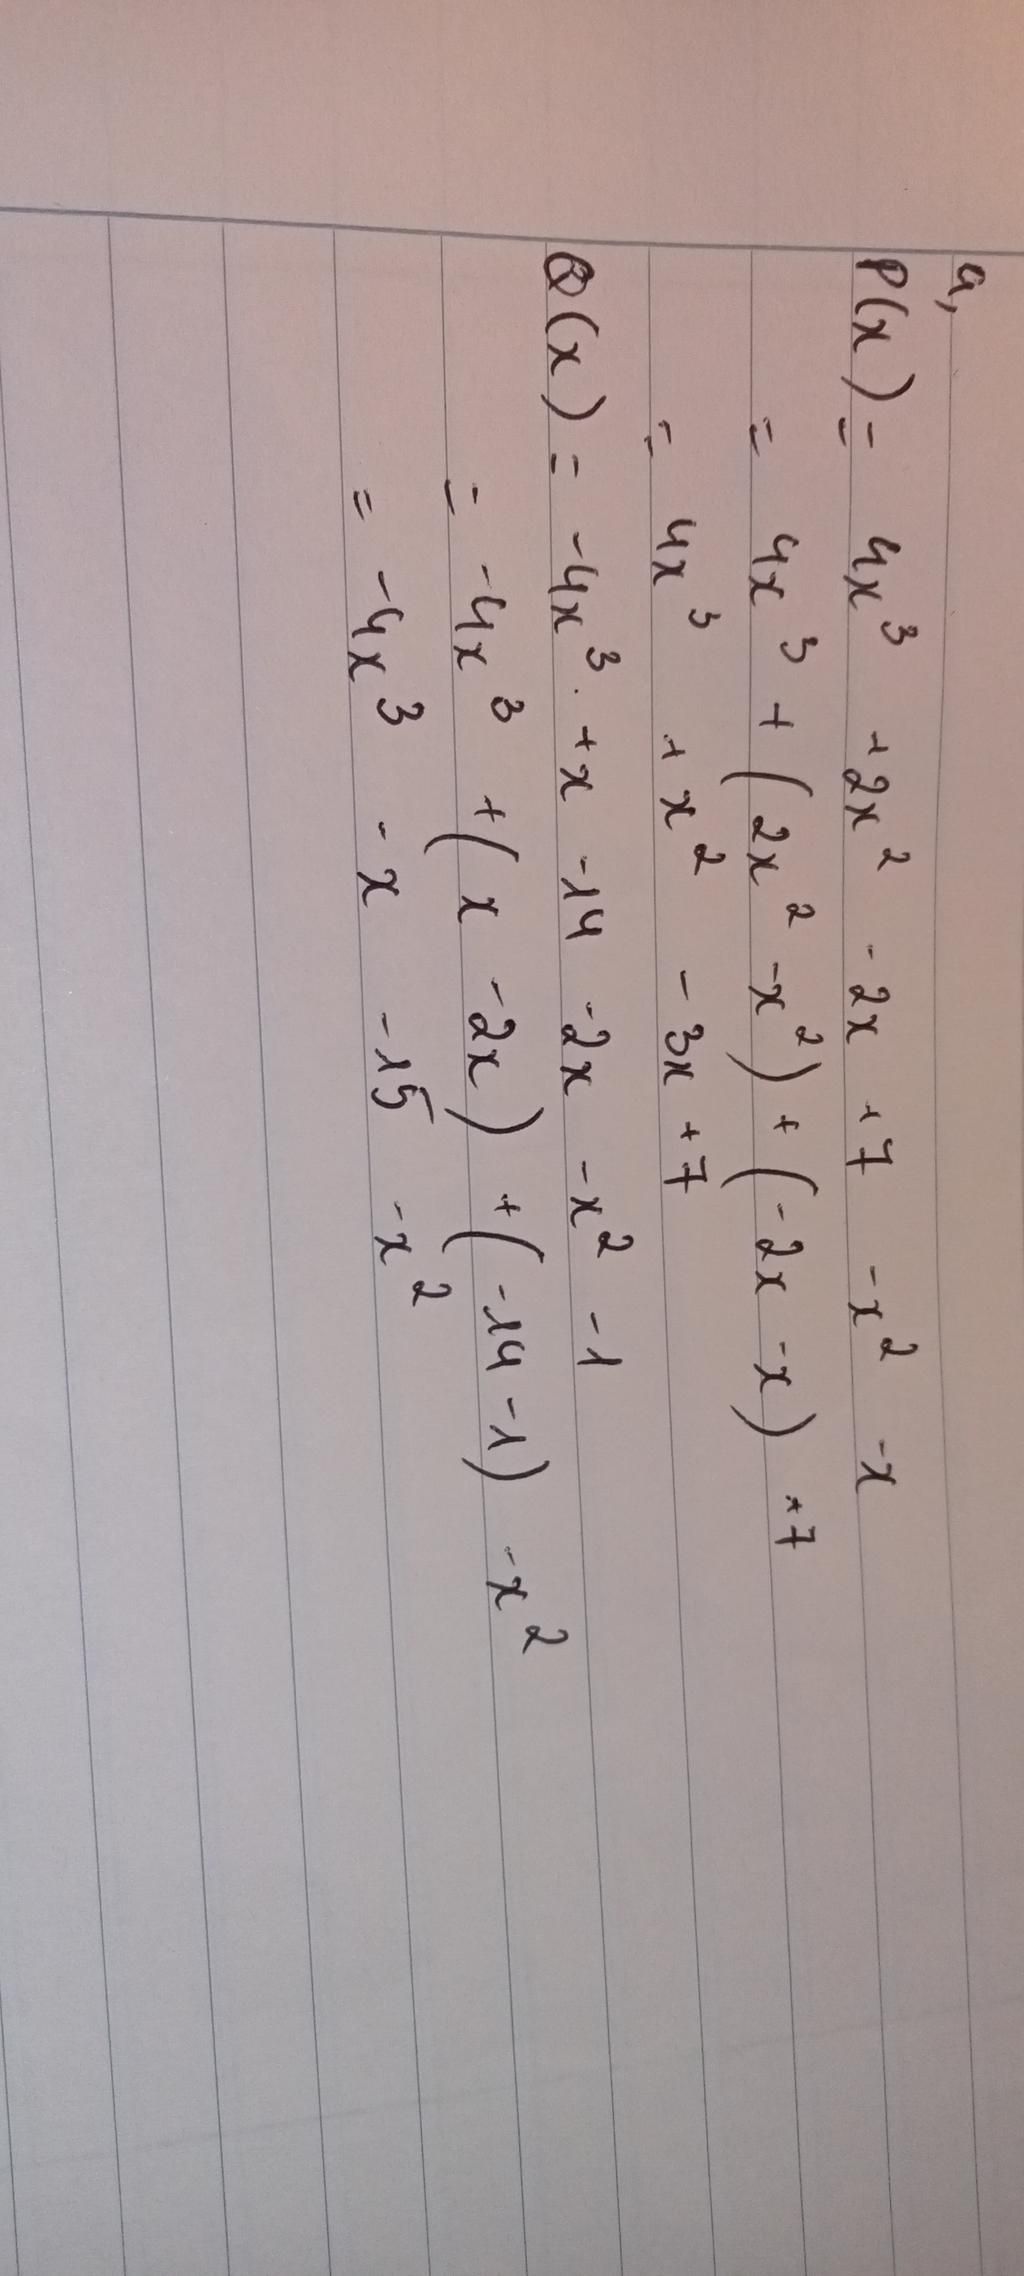 a,
P(x) = 4x³ + 2x² - 2x + 7 - x² - x
= 4x³ + (2x² - x²) + (-2x - x) + 7
= 4x³ + x² - 3x + 7
Q(x) = -4x³ + x - 14 - 2x - x² - 1
= -4x³ + (x - 2x) + (-14 - 1) - x²
= -4x³ - x - 15 - x²